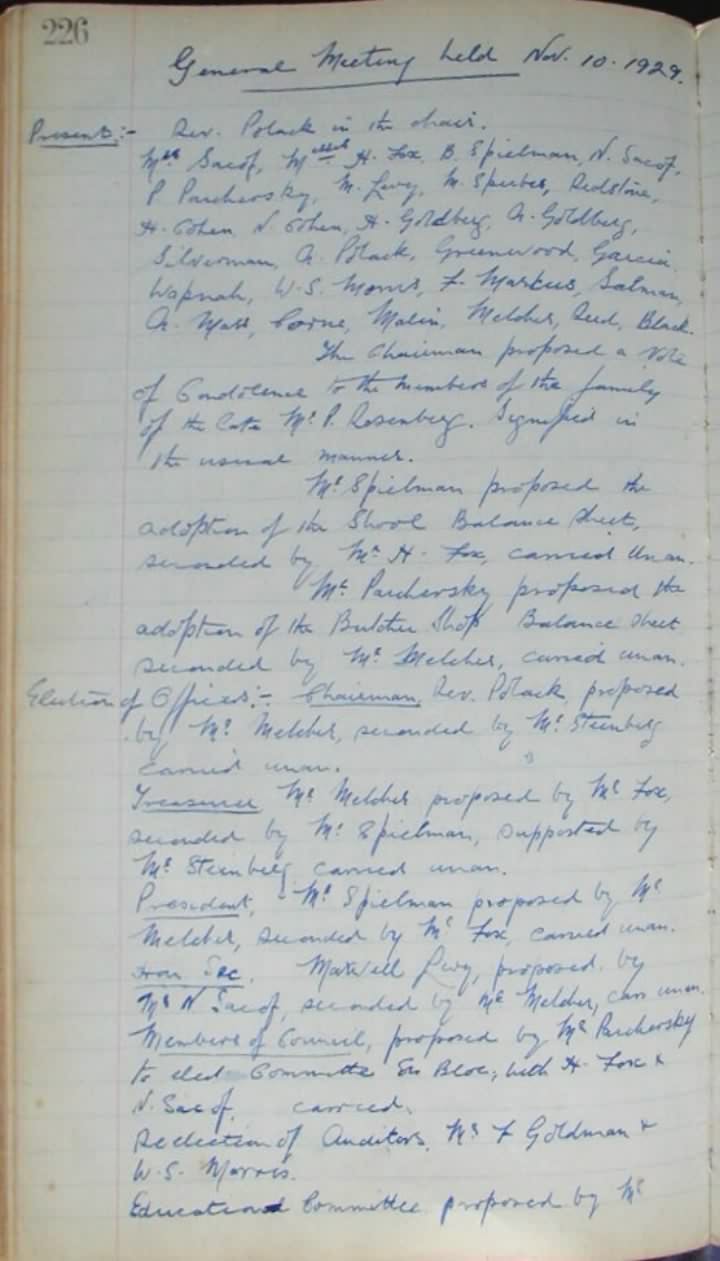 226
General Meeting held Nov. 10. 1929.
Present:- Rev. Polack in the chair.
Mrs Sacof, Messrs H. Fox, B. Spielman, N. Sacof,
P Parchevsky, M. Levy, M. Sperber, Redstone,
H. Cohen, N. Cohen, H. Goldberg, A. Goldberg,
Silverman, A. Polack, Greenwood, Garcia
Wapnah, W.S. Morris, F. Markus, Salman,
A. Mass, Corne, Malin, Melcher, Reed, Black.
The Chairman proposed a Vote
of Condolence to the members of the family
of the late Mr P. Rosenberg. Signified in
the usual manner.
Mr Spielman proposed the
adoption of the Shool Balance Sheet,
seconded by Mr H. Fox, carried unan.
Mr Parchevsky proposed the
adoption of the Butcher Shop Balance Sheet
seconded by Mr Melcher, carried unan.
Election of Officers:- Chairman, Rev. Polack, proposed
by Mr Melcher, seconded by Mr Steinberg
carried unan.
Treasurer Mr Melcher proposed by Mr Fox,
seconded by Mr Spielman, supported by
Mr Steinberg carried unan.
President, - Mr Spielman proposed by Mr
Melcher, seconded by Mr Fox, carried unan.
Hon Sec. Maxwell Levy, proposed by
Mr N Sacof, seconded by Mr Melcher, carr unan.
Members of Council, proposed by Mr Parchevsky
to elect Committe En Bloc, with H. Fox &
N. Sacof, carried.
Reelection of Auditors, Mr F Goldman &
W.S. Morris.
Educational Committee proposed by Mr